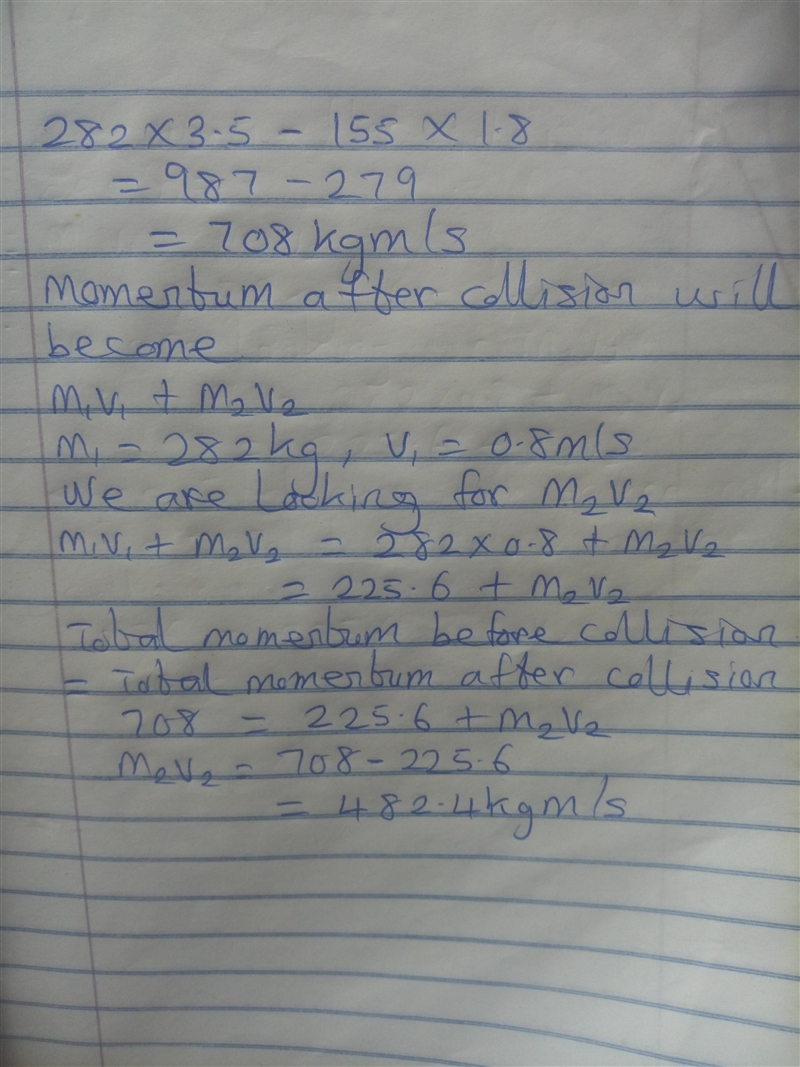 282 × 3.5 - 155 × 1.8
= 987 - 279
= 708 kgm/s
Momentum after collision will
become
M₁V₁ + M₂V₂
M₁ = 282kg, V₁ = 0.8m/s
We are Looking for M₂V₂
M₁V₁ + M₂V₂ = 282 × 0.8 + M₂V₂
= 225.6 + M₂V₂
Total momentum before collision
= Total momentum after collision
708 = 225.6 + M₂V₂
M₂V₂ = 708 - 225.6
= 482.4kgm/s